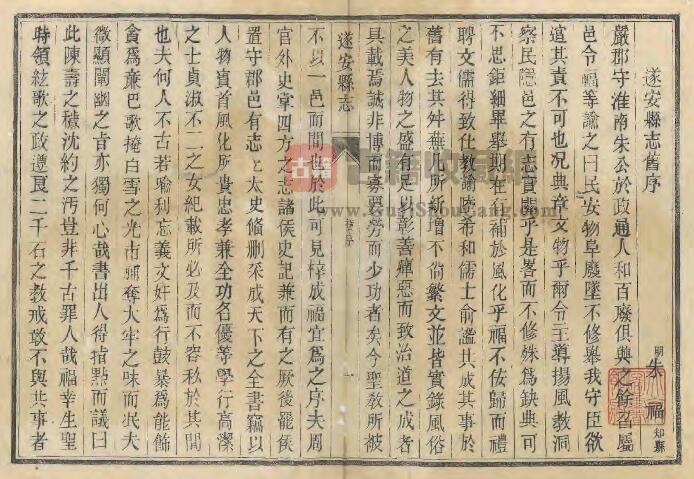 遂安縣志舊序
明 朱福 知縣
嚴郡守淮南朱公於政通人和百廢俱興之餘召屬
邑令福等諭之曰民安物阜廢墜不修舉我守臣欲
逭其責不可也况典章文物乎爾令主導揚風教洞
察民隱邑之有志實關乎是畧而不修殊爲缺典可
不思鉅細畢舉期在有補於風化乎福不佞歸而禮
聘文儒得致仕教諭 希和儒士俞謐共成其事於
舊有去其舛蕪 所新增不尙繁文並皆實錄風俗
之美人物之盛有足以彰善癉惡而致治道之成者
具載焉誠非博而寡要勞而少功者矣今聖敎所被
遂安縣志
舊序
一
不以一邑而間也於此可見梓成福宜爲之序夫周
官外史掌四方之志諸侯史記兼而有之厥後罷侯
置守郡邑有志上太史脩删采成天下之全書竊以
人物實首風化所貴忠孝兼全功名優等學行高潔
之士貞淑不二之女紀載所必及而不容私於其間
也夫何人不古若喻利忘義文奸爲行鼓暴爲能飾
貪爲亷巴歌掩白雪之光 奪太牢之味而泯夫
微顯闡幽之旨亦獨何心哉書出人得指點而議曰
此陳壽之穢沈約之汚豈非千古罪人哉福幸生聖
時領絃歌之政遵良二千石之教戒敢不與共事者
古籍收藏網
www.GuJiShouCang.com